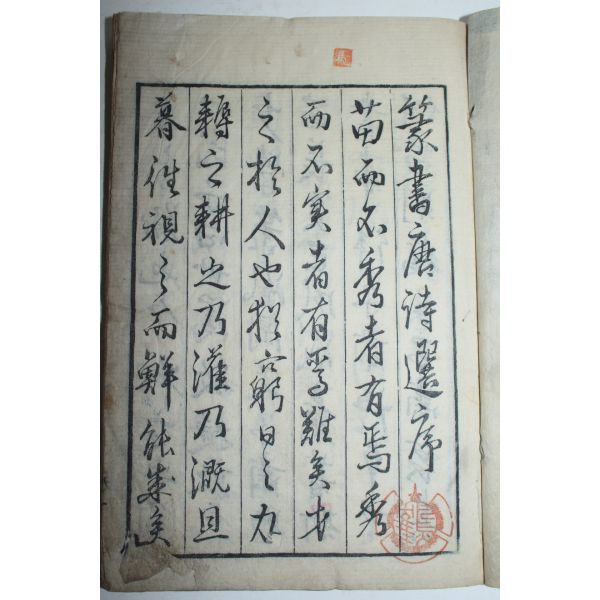 篆書唐詩選序
苗而不秀者有焉秀
而不実者有焉難矣才
之於人也猶窮日之力
耨之耕之乃灌乃漑旦
暮往視之而鮮能成矣